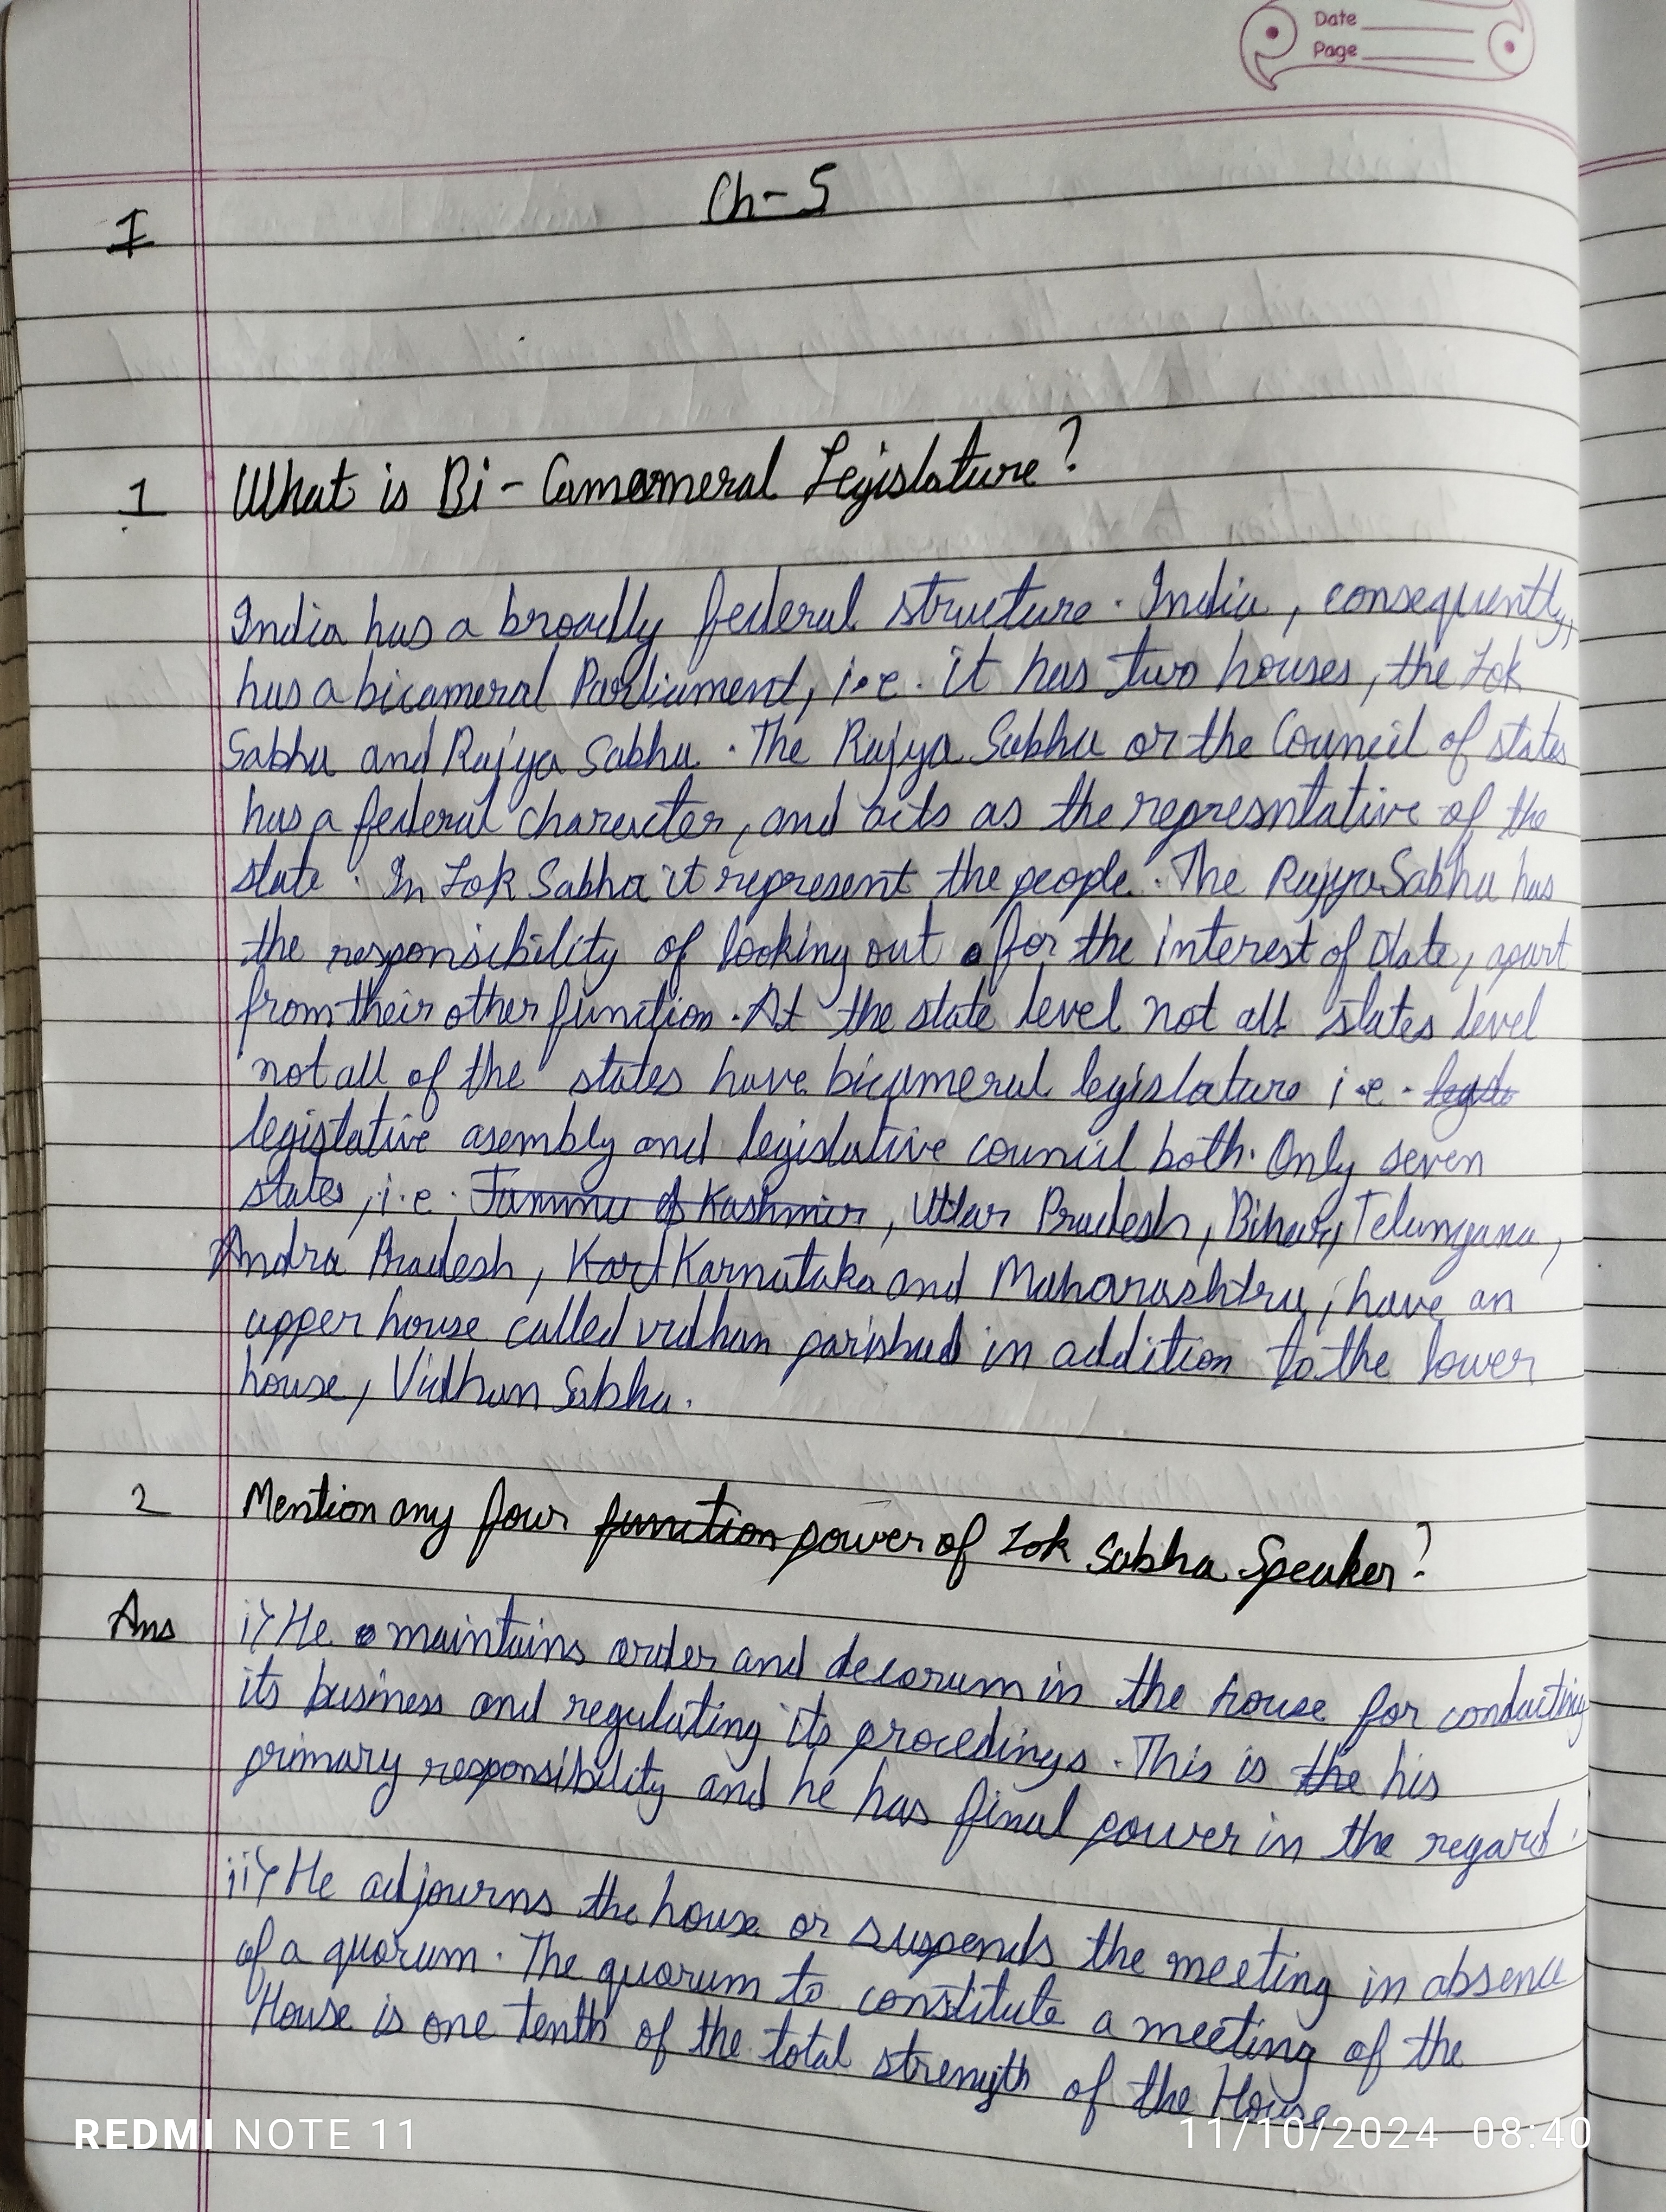 Date
Page
Ch-5
I
1 What is Bi-Camameral Legislature?
India has a broadly federal structure. India, consequently,
has a bicameral Parliament, i.e. it has two houses, the Lok
Sabha and Rajya Sabha. The Rajya Sabha or the Council of states
has a federal character, and acts as the represntative of the
state. In Lok Sabha it represent the people. The Rajya Sabha has
the responsibility of looking out for the interest of state, apart
from their other function. At the state level not all states level
not all of the states have bicameral legislature i.e.
legistative asembly and legislative council both. Only seven
states, i.e. Jammu & Kashmir, Uttar Pradesh, Bihar, Telangana,
Andra Pradesh, Kart Karnataka and Maharashtra, have an
upper house called vidhan parishad in addition to the lower
house, Vidhan Sabha.
2 Mention any four function power of Lok Sabha Speaker?
Ans i) He maintains order and decorum in the house for conducting
its business and regulating its procedings. This is the his
primary responsibility and he has final power in the regard.
ii) He adjourns the house or suspends the meeting in absence
of a quorum. The quorum to constitute a meeting of the
House is one tenth of the total strength of the House
REDMI NOTE 11
11/10/2024 08:40